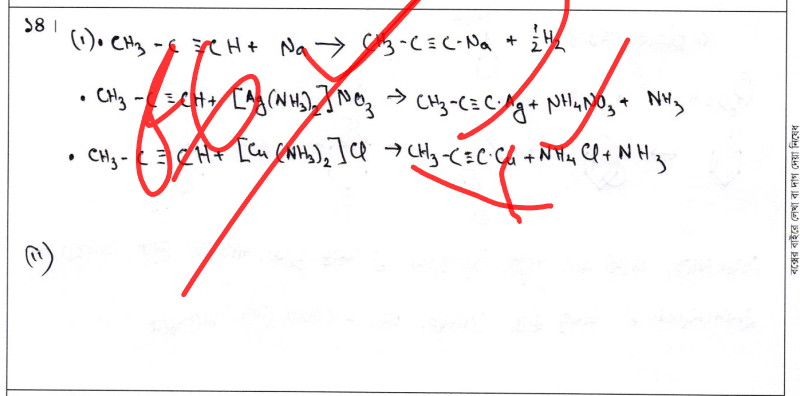 ১৪।
(i). CH₃ - C ≡ CH + Na → CH₃-C≡C-Na + ½H₂
• CH₃ - C ≡ CH + [Ag(NH₃)₂]NO₃ → CH₃-C≡C·Ag + NH₄NO₃ + NH₃
• CH₃ - C ≡ CH + [Cu(NH₃)₂]Cl → CH₃-C≡C·Cu + NH₄Cl + NH₃
(ii)
বক্সের বাইরে লেখা বা দাগ দেয়া নিষেধ